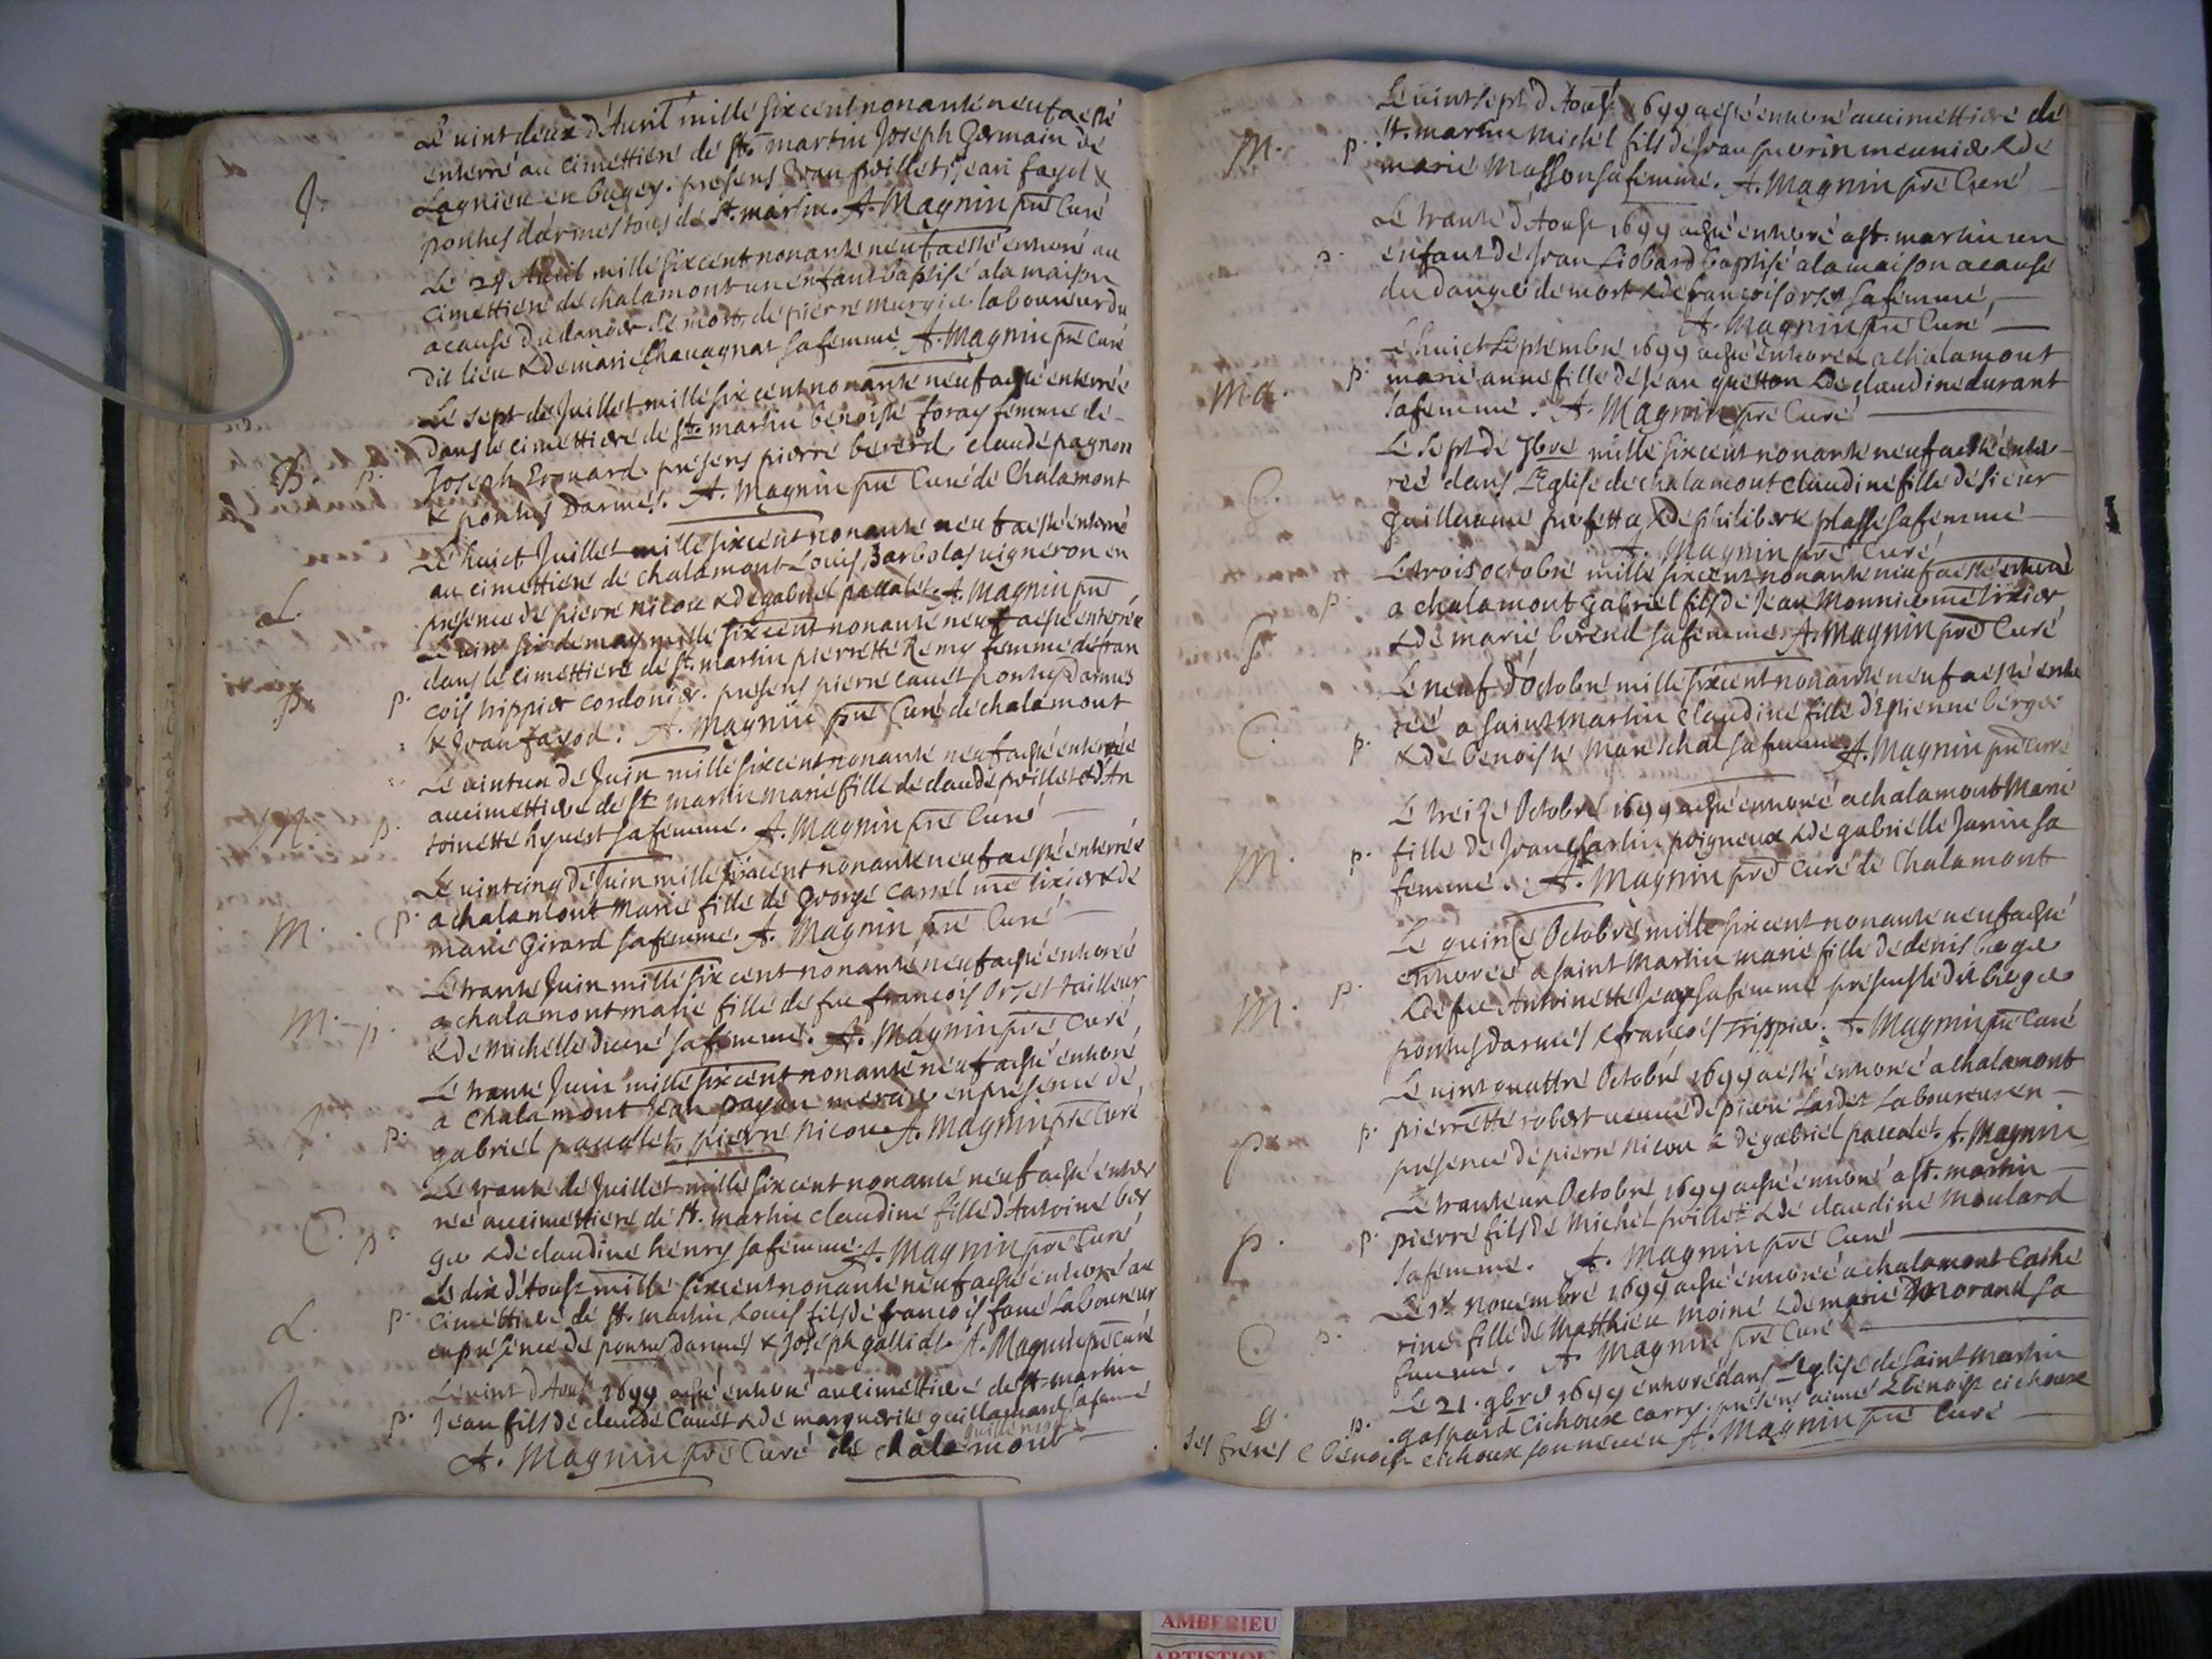 Le vint deux d'Avril mille six cent nonante neuf a esté
enterré au cimettiere de St. martin Joseph Germain de
J. Lagnieu en bugey. presens Jean poillet, Jean fayol &
ponthus darmes tous de St. martin. A. Magnin pre Curé
Le 24 Avril mille six cent nonante neuf a esté enterré au
cimettiere de chalamont un enfant baptisé a la maison
a cause du danger de mort, de pierre murgier laboureur du
dit lieu & de marie Chavagnat sa femme A. Magnin pre Curé
Le sept de Juillet mille six cent nonante neuf a esté enterrée
dans le cimettiere de St. martin benoiste foray femme de
B. p. Joseph Erouard. presens pierre bererd, claude pagnon
& ponthus Darmes. A. Magnin pre Curé de Chalamont
Le huict Juillet mille six cent nonante neuf a esté enterré
au cimettiere de chalamont Louis Barbolas vigneron en
L. presence de pierre nicou & de gabriel pacalet. A. Magnin pre
Le vint six de may mille six cent nonante neuf a esté enterrée
dans le cimettiere de St. martin pierrette Remy femme de fran
P. p. cois trippier cordonier. presens pierre cavet ponthus Darmes
& Jean fayod. A. Magnin pre Curé de chalamont
Le vint un de Juin mille six cent nonante neuf a esté enterrée
au cimettiere de St. martin marie fille de claude poillet & d'An
M. p. toinette hyvert sa femme. A. Magnin pre Curé
Le vint cinq de Juin mille six cent nonante neuf a esté enterrée
M. p. a chalamont marie fille de George Carrel me tixier & de
marie Girard sa femme. A. Magnin pre Curé
Le trante Juin mille six cent nonante neuf a esté enterrée
M. p. a chalamont marie fille de feu francois Orset tailleur
& de michelle ducré sa femme. A. Magnin pre Curé
Le trante Juin mille six cent nonante neuf a esté enterré
a Chalamont Jean payan mercier en presence de
J. p. gabriel pacallet, pierre nicou A. Magnin pre Curé
Le trante de Juillet mille six cent nonante neuf a esté enter
C. p. reé au cimettiere de St. martin claudine fille d'Antoine ber
ger & de claudine henry sa femme. A. Magnin pre Curé
Le dix d'Aoust mille six cent nonante neuf a esté enterré au
L. p. cimettiere de St. martin Louis fils de francois laboureur
en presence de ponthus darmes & Joseph A. Magnin pre Curé
Le vint d'Aoust 1699 a esté enterré au cimettiere de St. martin
J. p. Jean fils de claude Cavet & de marguerite guillamant sa femme
A. Magnin pre Curé de chalamont
Le vint sept d'Aoust 1699 a esté enterré au cimettiere de
M. p. St. martin michel fils de Jean guerin meunier & de
marie Masson sa femme. A. Magnin pre Curé
Le trante d'Aoust 1699 a esté enterré a St. martin un
p. enfant de Jean Liobard baptisé a la maison a cause
du danger de mort & de francoise orset sa femme
A. Magnin pre Curé
Le huict Septembre 1699 a esté enterrée a Chalamont
M.a. p. marie anne fille de Jean guetton & de claudine durant
sa femme. A. Magnin pre Curé
Le sept de 7bre mille six cent nonante neuf a esté enter
C. reé dans L'Eglise de chalamont claudine fille de sieur
guillaume & de philiberte plasse sa femme
A. Magnin pre Curé
Le trois octobre mille six cent nonante neuf a esté enterré
p. a chalamont gabriel fils de Jean Monnier me tixier
G & de marie berend sa femme. A. Magnin pre Curé
Le neuf d'Octobre mille six cent nonante neuf a esté enter
reé a saint Martin Claudine fille d'Estienne berger
C. p. & de benoiste mareschal sa femme. A. Magnin pre Curé
Le treize Octobre 1699 a esté enterré a chalamont Marie
M. p. fille de Jean poigneux & de gabrielle Janin sa
femme. A. Magnin pre Curé de Chalamont
Le quinze Octobre mille six cent nonante neuf a esté
enterreé a saint Martin marie fille de denis berger
M. p. & de feu Antoinette Jeay sa femme presens le dit berger
ponthus darmes & francois Trippier. A. Magnin pre Curé
Le vint quattre Octobre 1699 a esté enterré a chalamont
p. p. pierrette robert veuve de pierre Lardet Laboureur en
presence de pierre nicou & de gabriel pacalet. A. Magnin
Le trante un Octobre 1699 a esté enterré a St. martin
p. p. pierre fils de Michel poillet & de claudine moulard
sa femme. A. Magnin pre Curé
Le 1er Novembre 1699 a esté enterré a chalamont Cathe
C. p. rine fille de Matthieu Moine & de marie Morand sa
femme. A. Magnin pre Curé
Le 21. 9bre 1699 enterré dans L'Eglise de Saint Martin
g. p. gaspard Cichoux carry. presens aimé & benoist cichoux
ses freres & benoist cichoux son neveu A. Magnin pre Curé
AMBERIEU